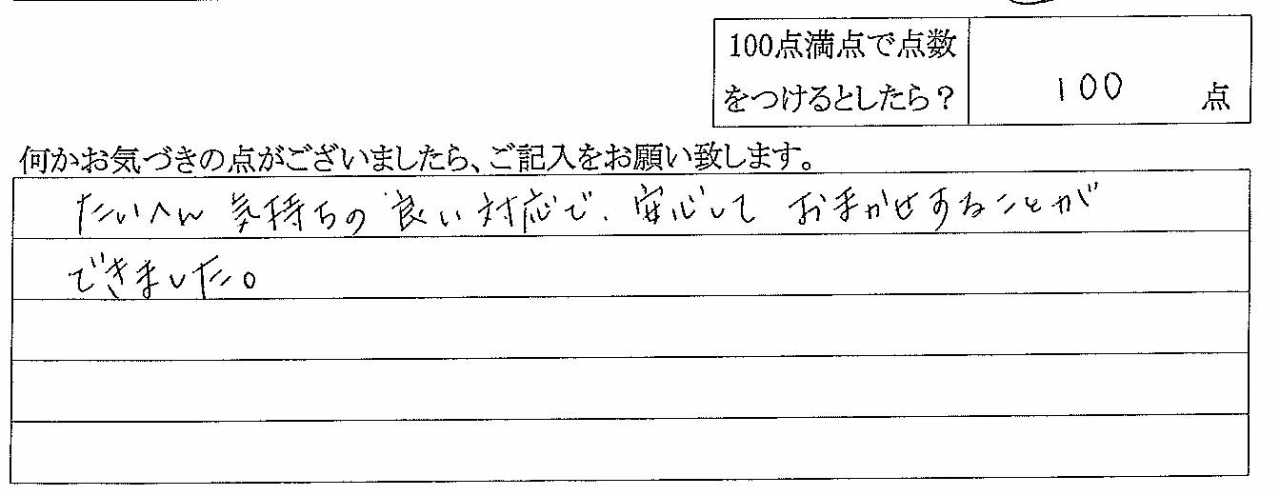 100点満点で点数
をつけるとしたら？
100 点
何かお気づきの点がございましたら、ご記入をお願い致します。
たいへん気持ちの良い対応で、安心しておまかせすることが
できました。